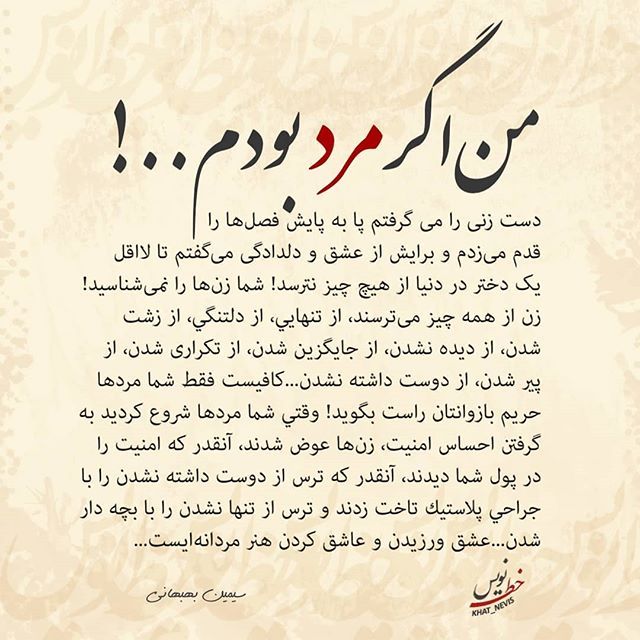 من اگر مرد بودم...!
دست زنی را می گرفتم پا به پایش فصل‌ها را
قدم می‌زدم و برایش از عشق و دلدادگی می‌گفتم تا لااقل
یک دختر در دنیا از هیچ چیز نترسد! شما زن‌ها را نمی‌شناسید!
زن از همه چیز می‌ترسند، از تنهایي، از دلتنگي، از زشت
شدن، از دیده نشدن، از جایگزین شدن، از تکراری شدن، از
پیر شدن، از دوست داشته نشدن...کافیست فقط شما مردها
حریم بازوانتان راست بگوید! وقتي شما مردها شروع کردید به
گرفتن احساس امنیت، زن‌ها عوض شدند، آنقدر که امنیت را
در پول شما دیدند، آنقدر که ترس از دوست داشته نشدن را با
جراحي پلاستيك تاخت زدند و ترس از تنها نشدن را با بچه دار
شدن...عشق ورزیدن و عاشق کردن هنر مردانه‌ایست...
سیمین بهبهانی
خط نویس
KHAT_NEVIS